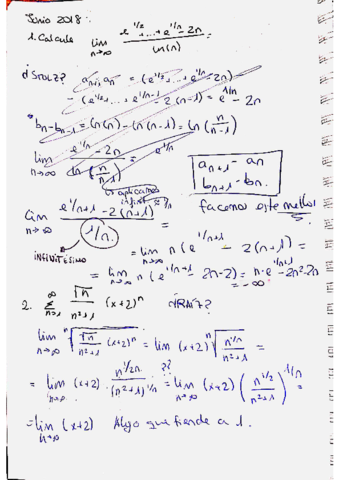 Junio 2018:
1. Calcule lim n→∞ (e^1/2 + ... + e^1/n - 2n) / ln(n)
¿STOLZ? a_n+1, a_n = (e^1/2 + ... + e^1/n - 2n)
- (e^1/2 + ... + e^1/n-1 - 2(n-1)) = e^1/n - 2n
* b_n - b_n-1 = ln(n) - ln(n-1) = ln(n/n-1)
lim n→∞ (e^1/n - 2n) / ln(n/n-1) = e^1/n
a_n+1 - a_n / b_n+1 - b_n.
↳ aplicamos infinit
facemos este mellor
lim n→∞ (e^1/n+1 - 2(n+1)) / (1/n.) =
INFINITÉSIMO = lim n→∞ n (e^1/n+1 - 2(n+1) =
= lim n→∞ n (e^1/n+1 - 2n-2) = n·e^1/n+1 - 2n² - 2n
= -∞
2. ∞ Σ n=1 √n / n²+1 (x+2)^n ¿RAÍZ?
lim n→∞ n√(√n / n²+1 (x+2)^n) = lim n→∞ (x+2) n√(n^1/2 / n²+1) =
= lim n→∞ (x+2) · n^1/2n / (n²+1)^1/n ?? = lim n→∞ (x+2) (n^1/2 / n²+1)^1/n =
= lim n→∞ (x+2) Algo que tiende a 1.